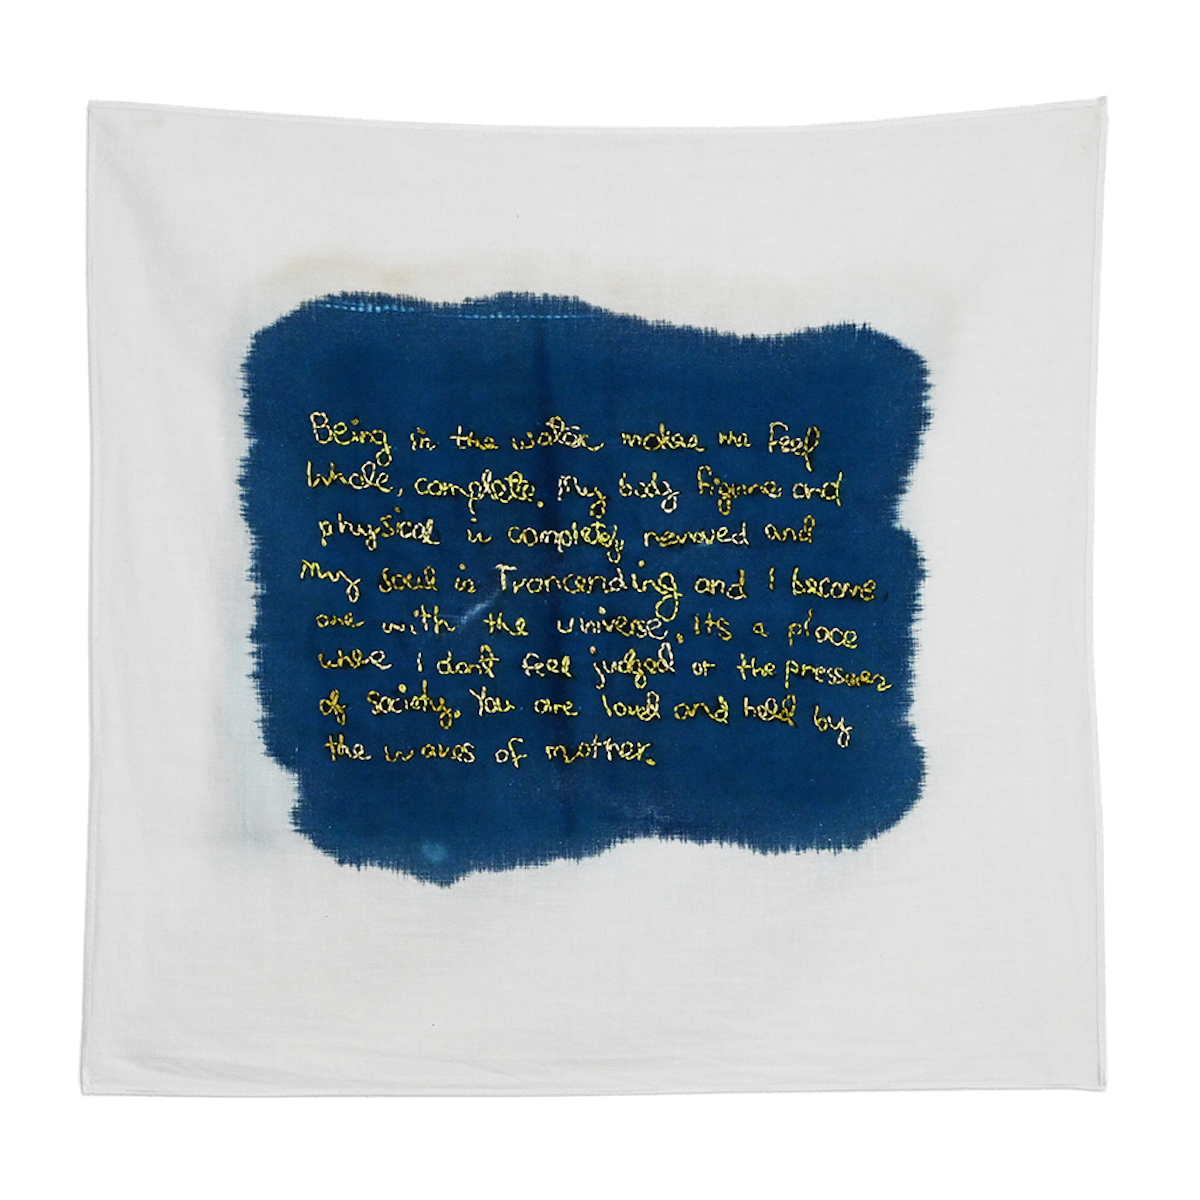 Being in the water makes me feel
Whole, complete. My body figure and
physical is completely removed and
My soul is Trancending and I become
one with the universe. Its a place
where I don't feel judged or the pressures
of society. You are loved and held by
the waves of mother.